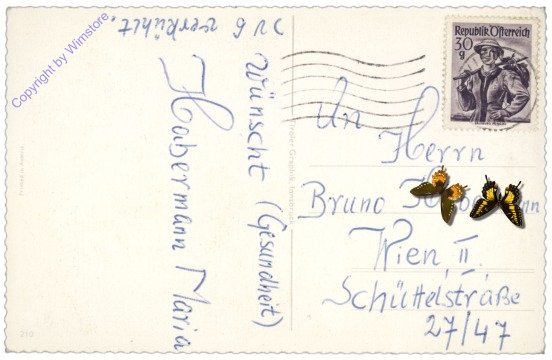 Copyright by Wimstore.
zu 6 verkühlt.
Wünscht (Gesundheit)
Habermann Maria
Printed in Austria
210
Tiroler Graphik, Innsbruck
Republik Österreich
30
g
An
Herrn
Bruno
Wien, II.
Schüttelstraße
27/47